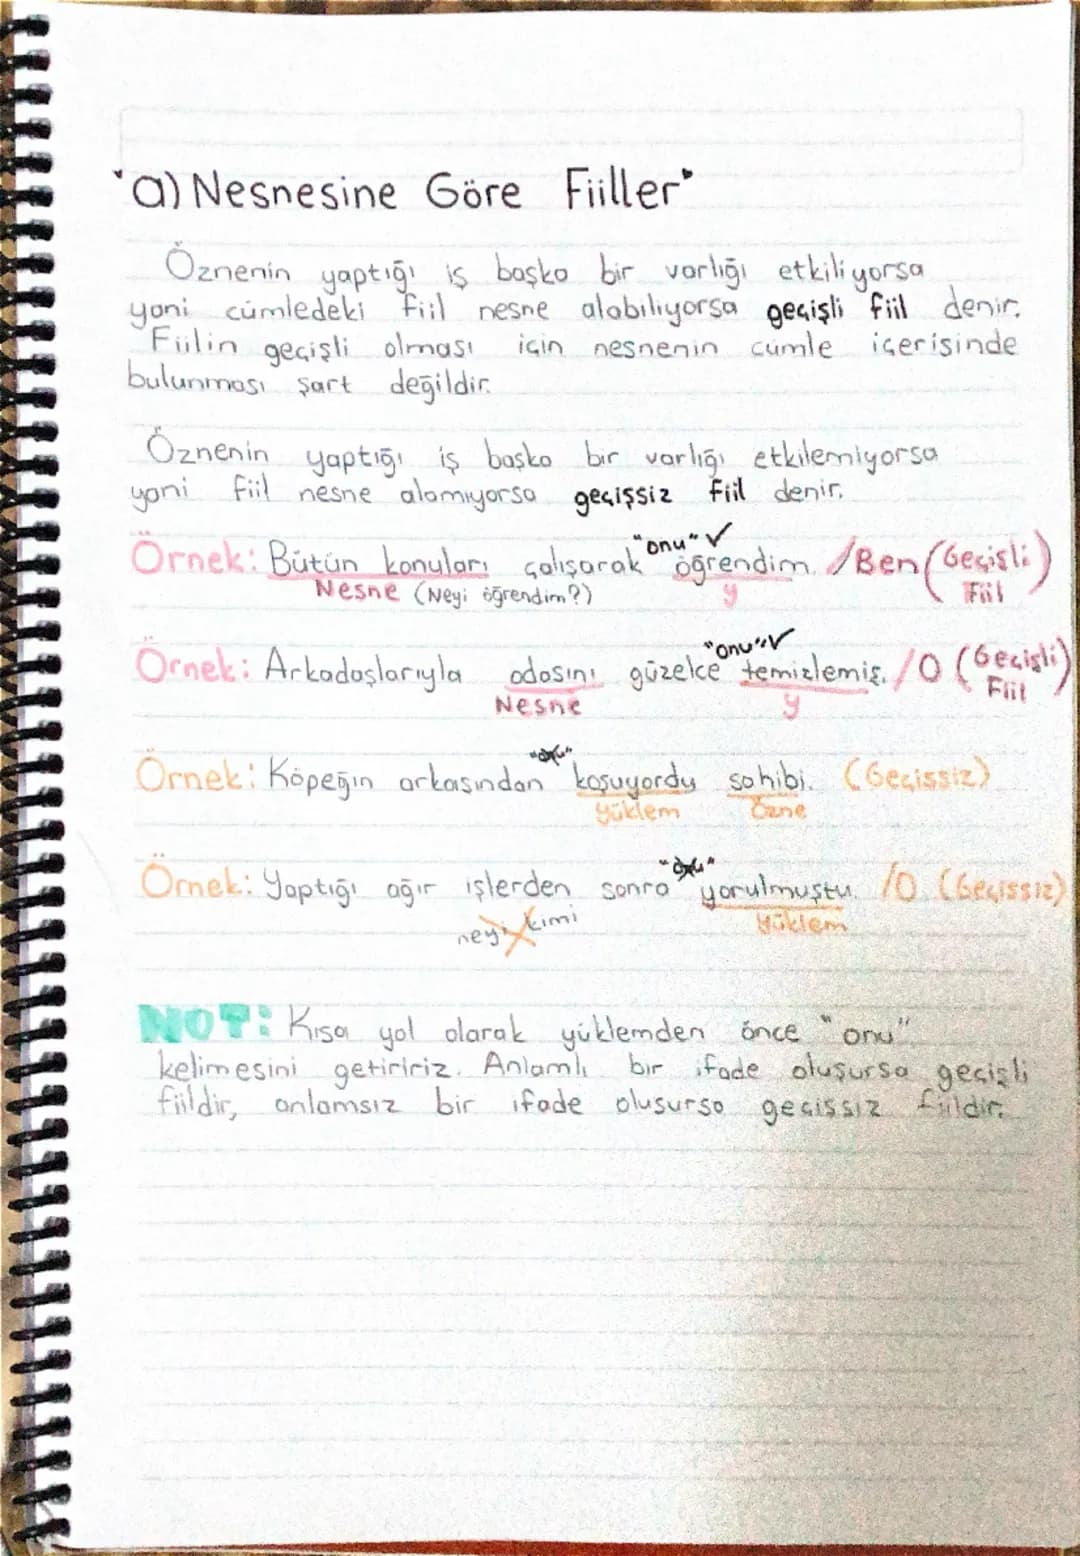 "a) Nesnesine Göre Fiiller"
Öznenin yaptığı iş başka bir varlığı etkiliyorsa
yani cümledeki fiil nesne alabiliyorsa geçişli fiil denir.
Fiilin geçişli olması için nesnenin cümle içerisinde
bulunması şart değildir.
Öznenin yaptığı iş başka bir varlığı etkilemiyorsa
yani fiil nesne alamıyorsa geçişsiz fiil denir.
"onu" ✓
Örnek: Bütün konuları çalışarak öğrendim. /Ben (Geçişli Fiil)
Nesne (Neyi öğrendim?) y
"onu" ✓
Örnek: Arkadaşlarıyla odasını güzelce temizlemiş. /O (Geçişli Fiil)
Nesne y
"onu"
Örnek: Köpeğin arkasından koşuyordu sahibi. (Geçissiz)
Yüklem Özne
"onu"
Örnek: Yaptığı ağır işlerden sonra yorulmuştu. /O (Geçissiz)
neyi kimi Yüklem
NOT: Kısa yol olarak yüklemden önce "onu"
kelimesini getiririz. Anlamlı bir ifade oluşursa geçişli
fiildir, anlamsız bir ifade olusursa geçissiz fiildir.